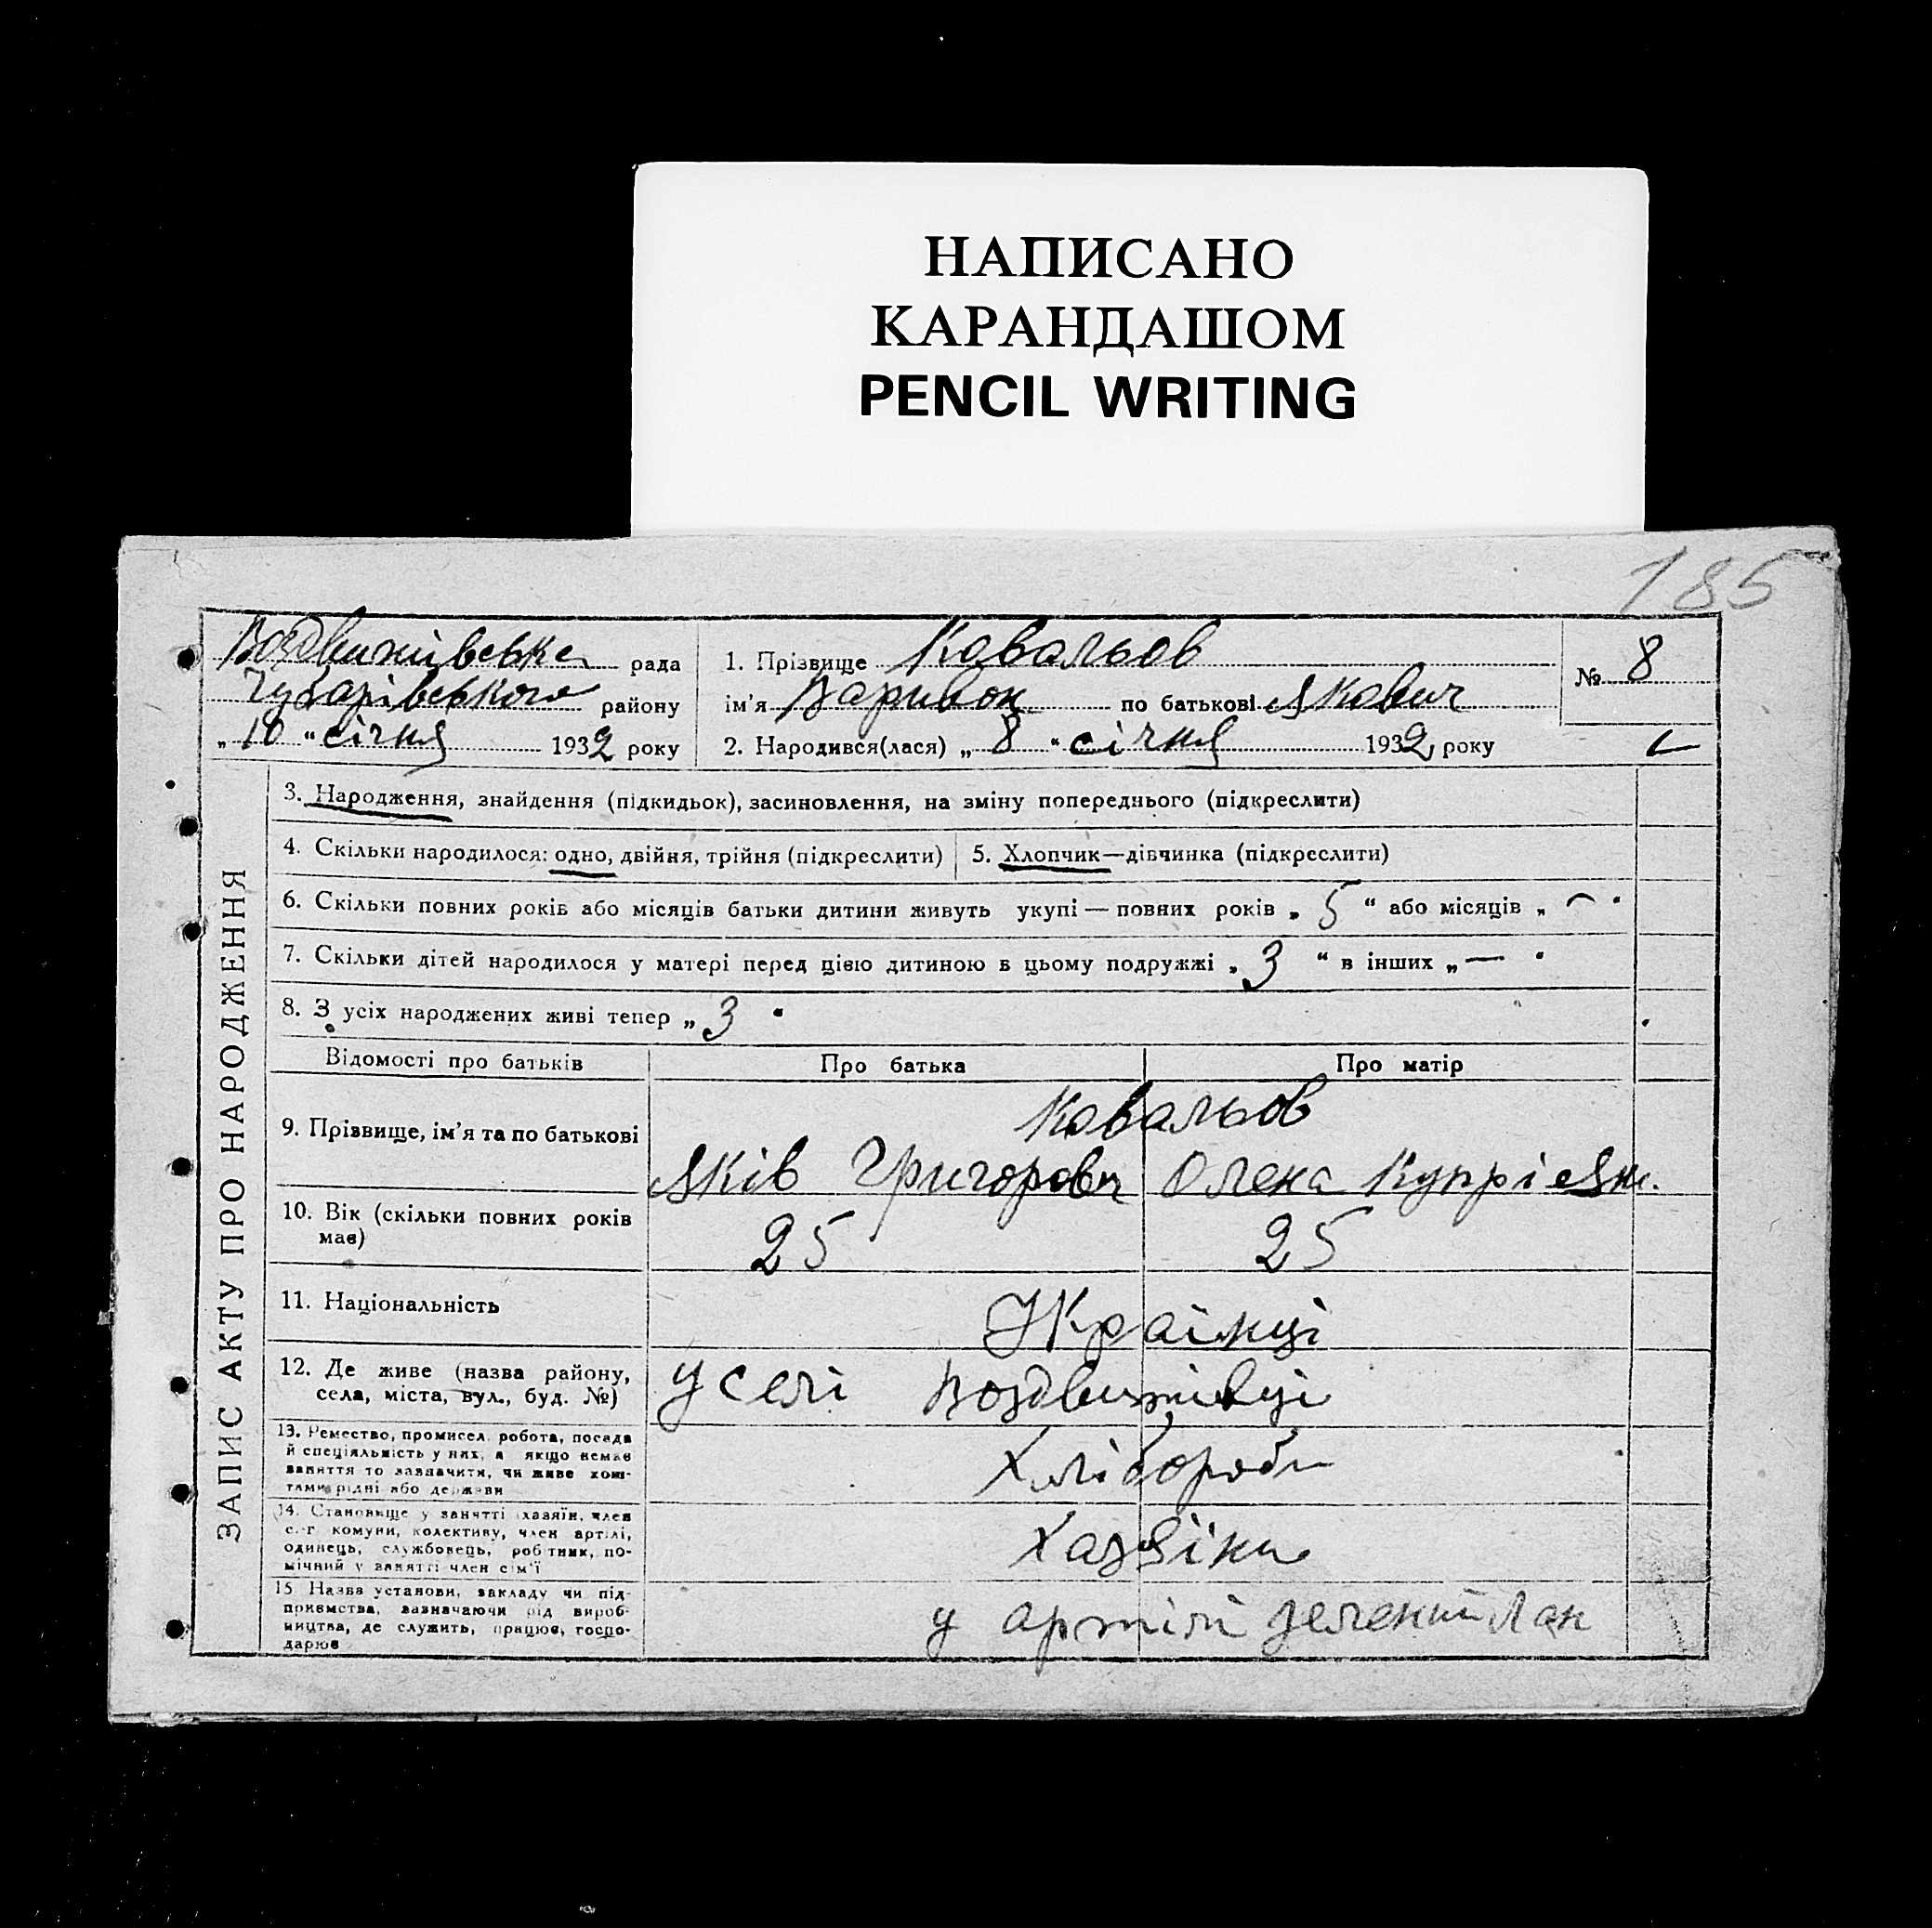 НАПИСАНО
КАРАНДАШОМ
PENCIL WRITING
185
Воздвижівська рада
Чубарівського району
„ 10 “ січня 1932 року
1. Прізвище Ковальов
ім'я Варивон по батькові Якович
№ 8
2. Народився(лася) „ 8 “ січня 1932 року
ЗАПИС АКТУ ПРО НАРОДЖЕННЯ
3. Народження, знайдення (підкидьок), засиновлення, на зміну попереднього (підкреслити)
4. Скільки народилося: одно, двійня, трійня (підкреслити)
5. Хлопчик—дівчинка (підкреслити)
6. Скільки повних років або місяців батьки дитини живуть укупі — повних років „ 5 “ або місяців „ — “
7. Скільки дітей народилося у матері перед цією дитиною в цьому подружжі „ 3 “ в інших „ — “
8. З усіх народжених живі тепер „ 3 “
Відомості про батьків Про батька Про матір
9. Прізвище, ім'я та по батькові
Ковальов
Яків Григорович Олена Купріян.
10. Вік (скільки повних років
має)
25 25
11. Національність
Українці
12. Де живе (назва району,
села, міста, вул., буд. №)
У селі Воздвижівці
13. Ремество, промисел, робота, посада
й спеціяльність у них, а якщо немає
заняття то зазначити, чи живе кош-
тами рідні або держави
Хлібороби
14. Становище у занятті (хазяїн, член
с.-г. комуни, колективу, член артілі,
одинець, службовець, робітник, по-
мічний у занятті член сім'ї
Хазяіни
15. Назва установи, закладу чи під-
приємства, зазначаючи рід вироб-
ництва, де служить, працює, госпо-
дарює
у артілі зелений Лан